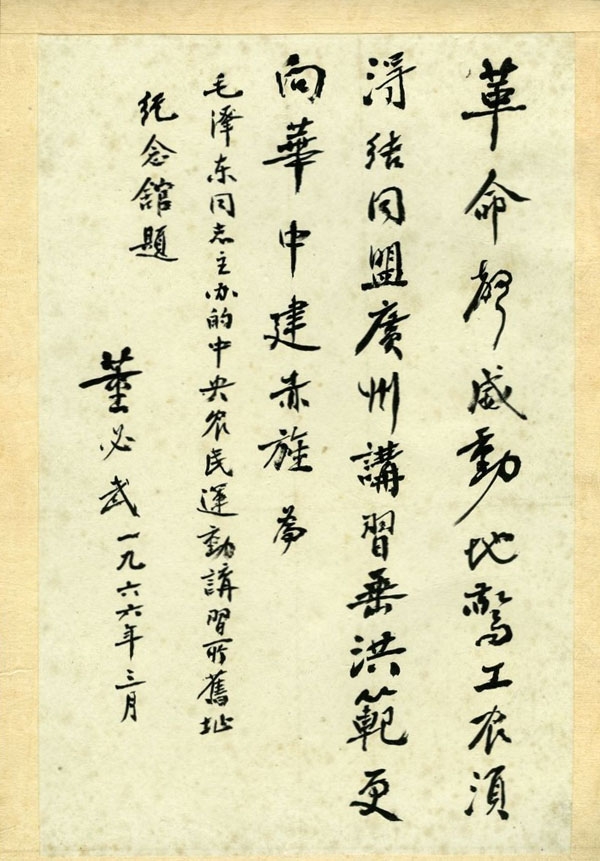 革命聲威動地驚工农須
得结同盟廣州講習垂洪範更
向華中建赤旌 為
毛泽东同志主办的中央农民運動講習所舊址
纪念舘題
董必武一九六六年三月